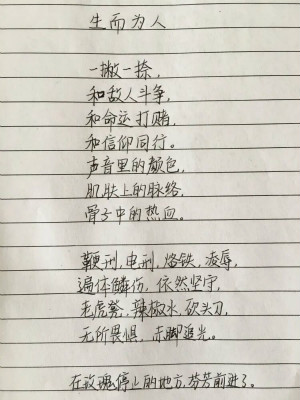 生而为人
一撇一捺,
和敌人斗争,
和命运打赌,
和信仰同行。
声音里的颜色,
肌肤上的脉络,
骨子中的热血。
鞭刑,电刑,烙铁,凌辱,
遍体鳞伤,依然坚守,
老虎凳,辣椒水,砍头刀,
无所畏惧,赤脚追光。
在玫瑰停止的地方,芬芳前进了。